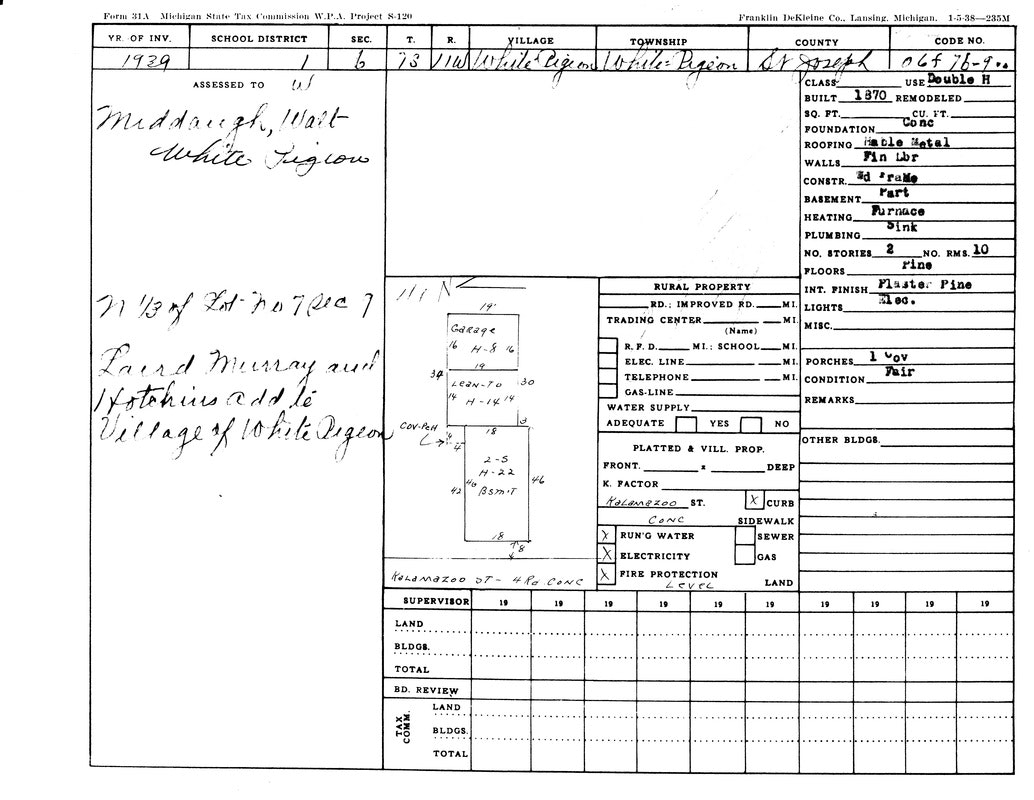 Form 31A Michigan State Tax Commission W.P.A. Project S-120
Franklin DeKleine Co., Lansing, Michigan. 1-5-38—235M
YR. OF INV. SCHOOL DISTRICT SEC. T. R. VILLAGE TOWNSHIP COUNTY CODE NO.
1939 1 6 73 11W White Pigeon White-Pigeon St Joseph
ASSESSED TO W
Middaugh, Walt
White Pigeon
N 1/3 of Lot No 7 Sec 7
Laird Murray and
Hotchins add to
Village of White Pigeon
N
19'
Garage
16 H-8 16
19
34
Lean-To 30
14 H-14 14
3
Cov-Pch
18
4
4
2-S
H-22
46
Bsm'T
42
46
18
8
4
Kalamazoo ST- 4 Rd Conc
RURAL PROPERTY
RD.; IMPROVED RD. MI.
TRADING CENTER MI.
(Name)
R. F. D. MI.; SCHOOL MI.
ELEC. LINE MI.
TELEPHONE MI.
GAS-LINE
WATER SUPPLY
ADEQUATE YES NO
PLATTED & VILL. PROP.
FRONT. x DEEP
K. FACTOR
Kalamazoo ST. X CURB
Conc SIDEWALK
X RUN'G WATER SEWER
X ELECTRICITY GAS
X FIRE PROTECTION
Level LAND
CLASS USE Double H
BUILT 1870 REMODELED
SQ. FT. CU. FT.
FOUNDATION Conc
ROOFING Metal
WALLS Fin Lbr
CONSTR. Wd Frame
BASEMENT Part
HEATING Furnace
PLUMBING Sink
NO. STORIES 2 NO. RMS. 10
FLOORS Pine
INT. FINISH Plaster Pine
LIGHTS Elec.
MISC.
PORCHES 1 Cov
CONDITION Fair
REMARKS
OTHER BLDGS.
SUPERVISOR 19 19 19 19 19 19 19 19 19 19
LAND
BLDGS.
TOTAL
BD. REVIEW
TAX COMM.
LAND
BLDGS.
TOTAL